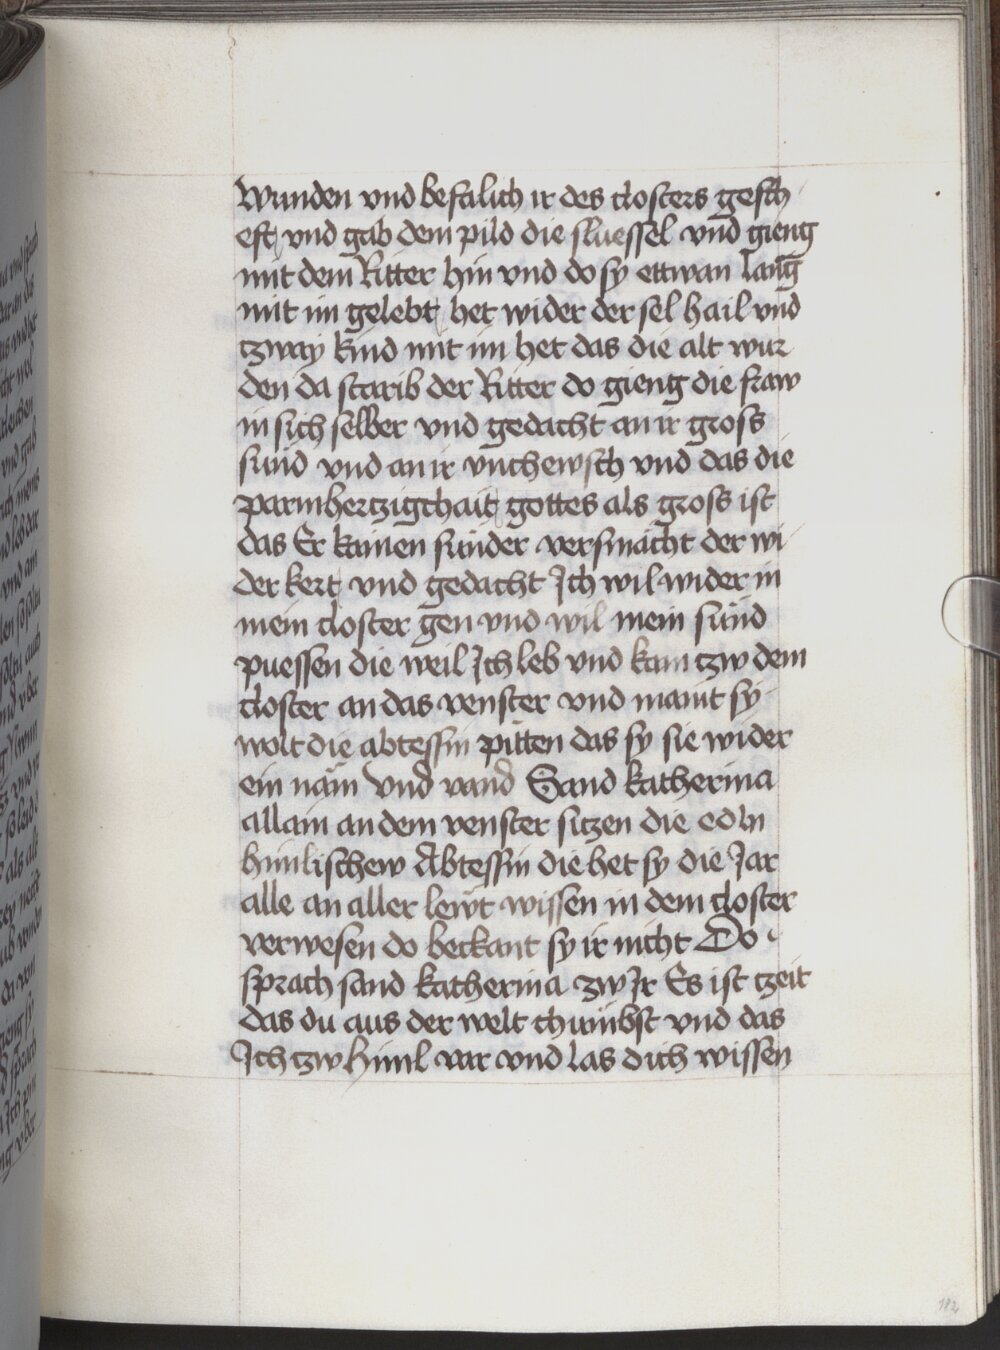 wunden vnd befalich ir des closters gesch
eft vnd gab dem pild die sluessel vnd gieng
mit dem Ritter hin vnd do sy ettwan lang
mit im gelebt het wider der sel hail vnd
tzway kind mit im het das die alt wur
den da starib der Ritter do gieng die fraw
in sich selber vnd gedacht an ir gross
sund vnd an ir vnchewsch vnd das die
parmhertzigkhait gottes als gross ist
das Er kainen sunder versmacht der wi
der kert vnd gedacht Ich wil wider in
mein closter gen vnd wil mein sund
puessen die weil Ich leb vnd kam tzw dem
closter an das venster vnd maint sy
wolt die abtessin pitten das sy sie wider
ein näm vnd vand Sand katherina
allain an dem venster sitzen die edln
himlischew Abtessin die het sy die Jar
alle an aller lewt wissen in dem closter
verwesen do beckant sy ir nicht Do
sprach sand katherina zw Ir Es ist tzeit
das du aus der welt chumbst vnd das
Ich tzw himl var vnd las dich wissen
182